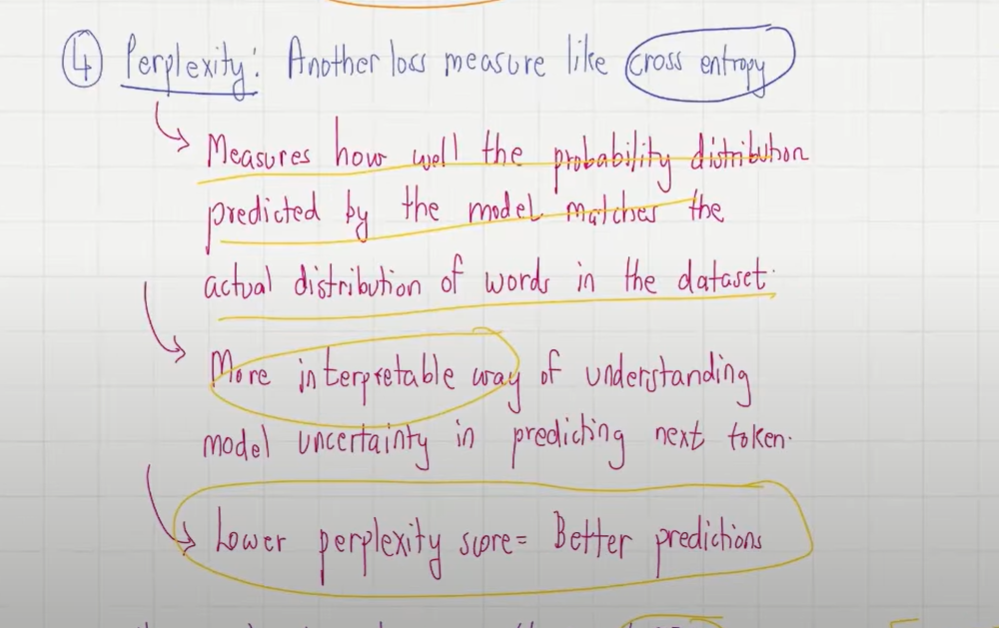 ④ Perplexity: Another loss measure like cross entropy
Measures how well the probability distribution
predicted by the model matches the
actual distribution of words in the dataset.
More interpretable way of understanding
model uncertainty in predicting next token.
Lower perplexity score = Better predictions